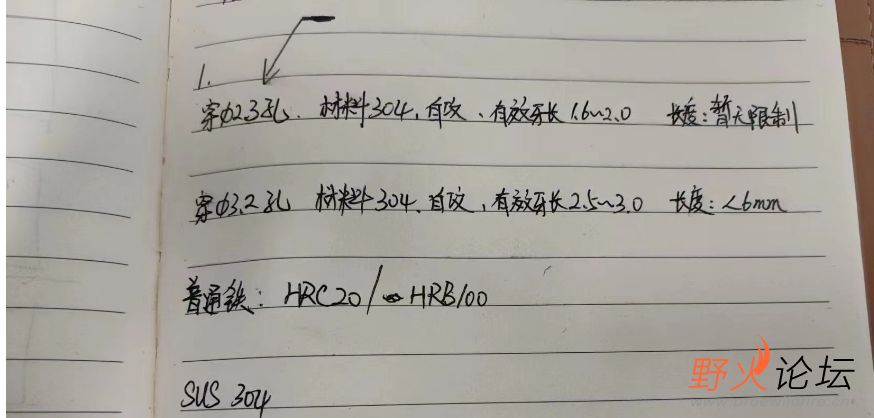 1.
穿φ2.3孔. 材料304,自攻、有效牙长1.6~2.0 长度:暂无限制
穿φ3.2孔 材料304、自攻、有效牙长2.5~3.0 长度:<6mm
普通铁: HRC20/ HRB100
SUS 304
野火论坛